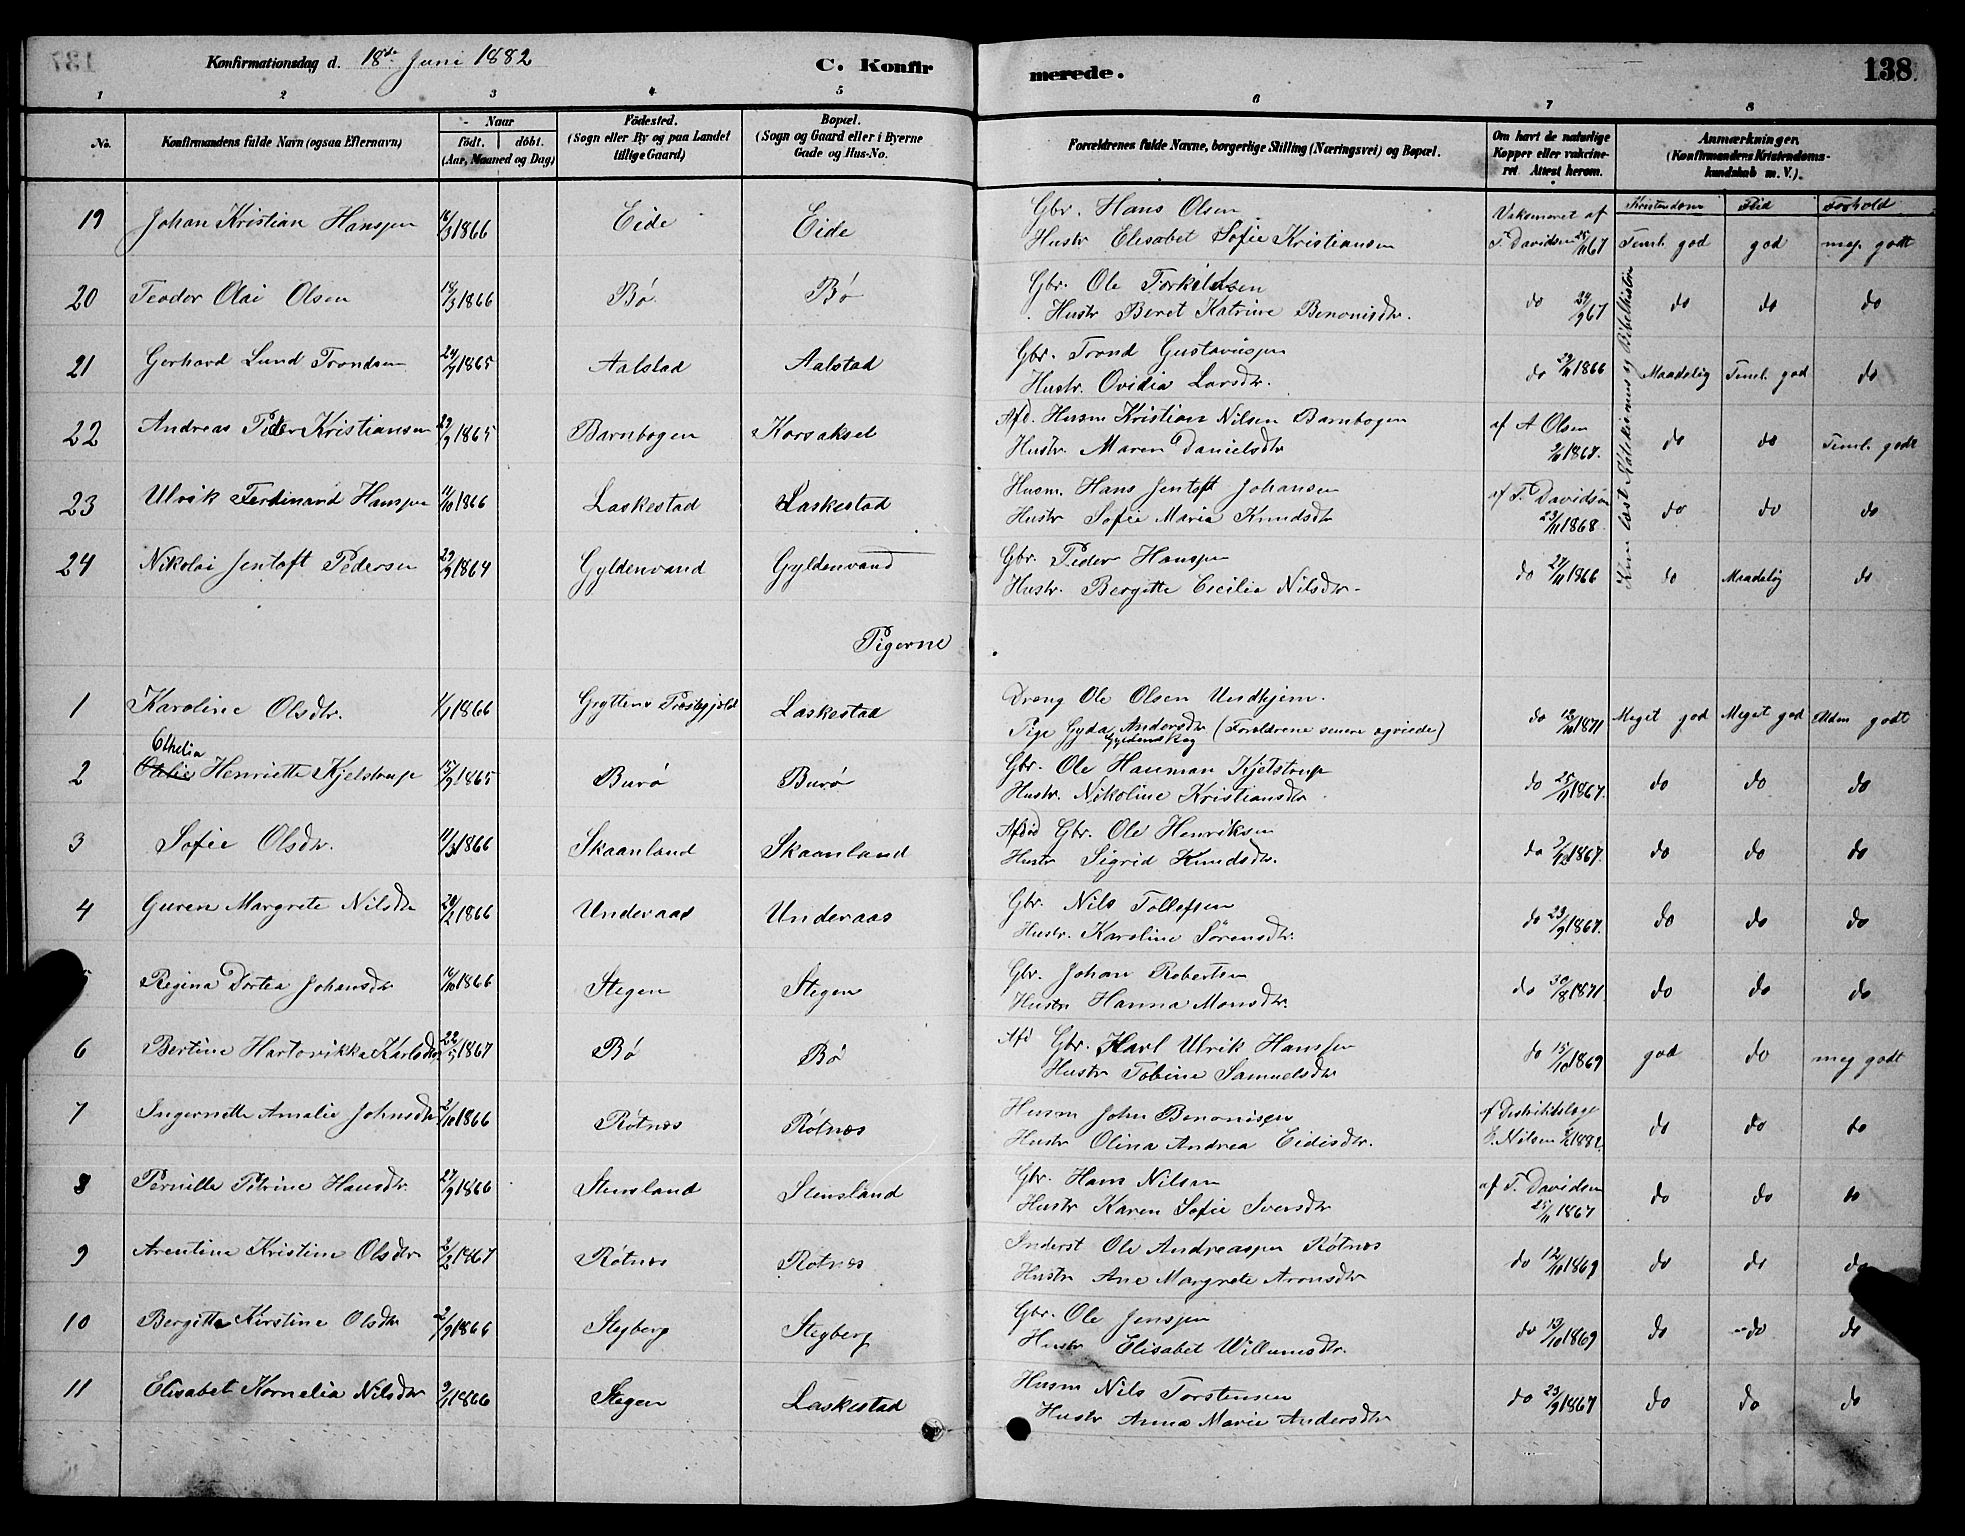 Konfirmationsdag d. 18de Juni 1882
C. Konfirmerede.
138
1 2 3 4 5 6 7 8
No.
Konfirmandens fulde Navn (ogsaa Efternavn)
Naar
födt. döbt.
(Aar, Maaned og Dag)
Födested.
(Sogn eller By og paa Landet
tillige Gaard)
Bopæl.
(Sogn og Gaard eller i Byerne
Gade og Hus-No.
Forældrenes fulde Navne, borgerlige Stilling (Næringsvei) og Bopæl.
Om havt de naturlige
Kopper eller vakcine-
ret Attest herom.
Anmærkninger.
(Konfirmandens Kristendoms-
kundskab m. V.).
Kristendom Flid Forhold
19 Johan Kristian Hanssen 16/3 1866 Eide Eide Gbr. Hans Olsen Vaksineret af
Hustr Elisabet Sofie Kristiansen T. Davidsen 25/11 67 Teml. god god meg. godt
20 Teodor Olai Olsen 14/3 1866 Bø Bø Gbr. Ole Torkildsen
Hustr Beret Katrine Benonisdtr. do 24/9 67 do do do
21 Gerhard Lund Trondsen 1865 Aalstad Aalstad Gbr. Trond Gustavussen
Hustr. Ovidia Larsdtr. do 1866 Maadelig Teml. god do
22 Andreas Peder Kristiansen 1865 Barnbogen Korsaksel Afd. Husm Kristian Nilsen Barnbogen af A Olsen
Hustr. Maren Danielsdtr 1867. do do Teml. godt
23 Ulrik Ferdinand Hanssen 11/10 1866 Laskestad Laskestad Husm. Hans Jentoft Johansen af T. Davidsen
Hustr Sofie Maria Knudsdtr 23/11 1868 do do do
24 Nikolai Jentoft Pedersen 1864 Gyldenvand Gyldenvand Gbr. Peder Hanssen
Hustr. Bergitte Cecilia Nilsdtr. do 1866 do Maadelig do
Kun læst Katekismus og Bibelhistorie
Pigerne
1 Karoline Olsdtr. 1/1 1866 Gryttens Præstegjeld Laskestad Dreng Ole Olsen Undhjem.
Pige Gyda Andersdtr (Forældrene senere egviede) do 12/10 1871 Meget god Meget god godt
Gyldenskog
2 Othelia
Henriette Kjelstrup 15/9 1865 Burø Burø Gbr. Ole Hauman Kjelstrup
Hustr. Nikoline Kristiansdtr do 25/11 1867. do do do
3 Sofie Olsdtr. 11/3 1866 Skaanland Skaanland Afdød Gbr. Ole Henriksen
Hustr Sigrid Knudsdtr. do 1867. do do do
4 Guren Margrete Nilsdtr 20/2 1866 Underaas Underaas Gbr Nils Tollefsen
Hustr. Karoline Sørensdtr. do 23/9 1867. do do do
5 Regina Dortea Johansdtr 16/10 1866 Stegen Stegen Gbr. Johan Robertsen
Hustr Hanna Monsdtr. do 30/8 1871. do do do
6 Bertine Hartvikka Karlsdtr. 1867 Bø Bø Afd Gbr. Karl Ulrik Hanssen
Hustr Tobine Samuelsdtr do 15/10 1869 god do meg godt
7 Ingernette Amalie Johnsdtr 2/10 1866 Røtnes Røtnes Husm John Benonisen af Distriktslæge
Hustr Olina Andrea Eidisdtr. E. Nilsen 1882. do do do
8 Pernille Petrine Hansdtr. 27/9 1866 Stensland Stensland Gbr. Hans Nilsen af T. Davidsen
Hustr Karen Sofie Iversdtr 25/11 1867 do do do
9 Arentine Kristine Olsdtr 2/2 1867 Røtnes Røtnes Inderst Ole Andreassen Røtnes
Hustr Ane Margrete Aronsdtr do 12/10 1869 do do do
10 Bergitta Kirstine Olsdtr 2/9 1866 Stegberg Stegberg Gbr. Ole Jenssen
Hustr Elisabet Willumsdtr. do 13/10 1869 do do do
11 Elisabet Kornelia Nilsdtr 9/1 1866 Stegen Laskestad Husm Nils Torstensen
Hustr Anna Marie Andersdtr do 23/9 1867 do do do